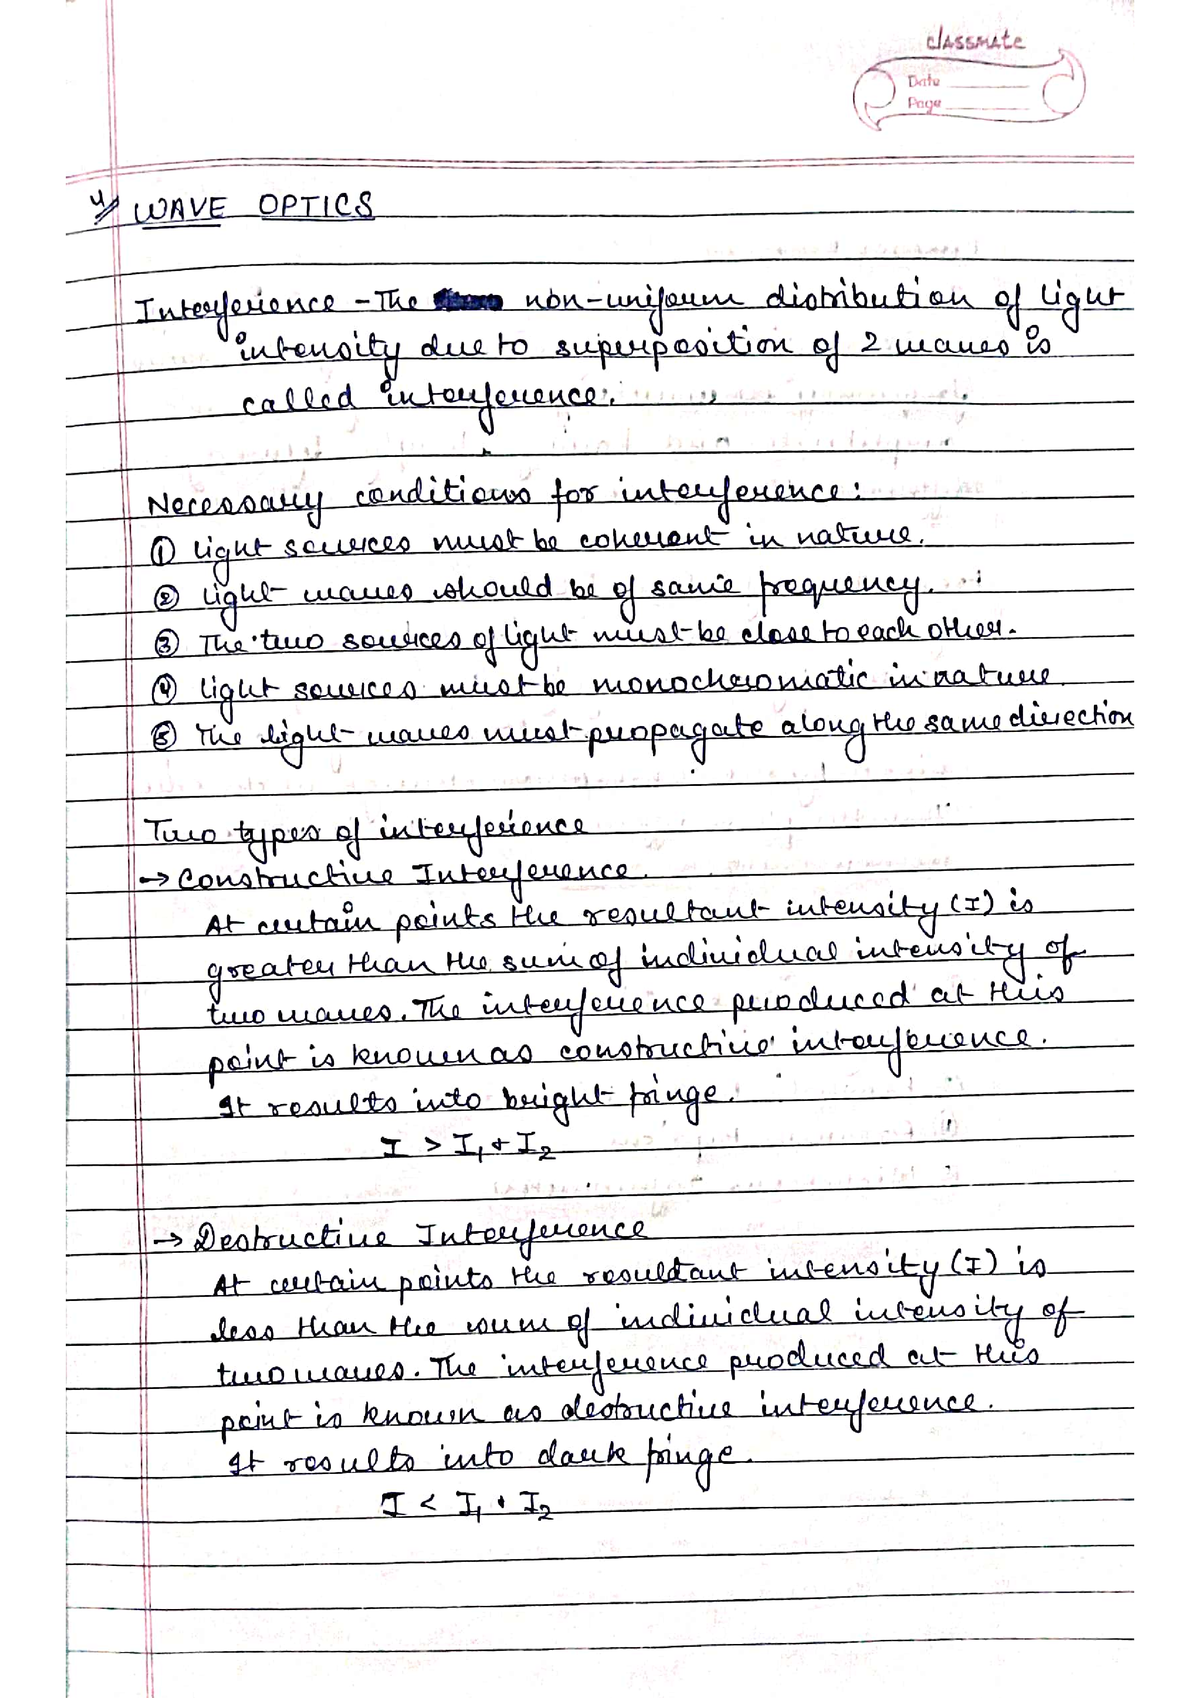 classmate
Date
Page
4) WAVE OPTICS
Interference - The non-uniform distribution of light
intensity due to superposition of 2 waves is
called interference.
Necessary conditions for interference:
① light sources must be coherent in nature.
② light waves should be of same frequency.
③ The two sources of light must be close to each other.
④ light sources must be monochromatic in nature
⑤ The light waves must propagate along the same direction
Two types of interference
→ Constructive Interference.
At certain points the resultant intensity (I) is
greater than the sum of individual intensity of
two waves. The interference produced at this
point is known as constructive interference.
It results into bright fringe.
I > I₁ + I₂
→ Destructive Interference
At certain points the resultant intensity (I) is
less than the sum of individual intensity of
two waves. The interference produced at this
point is known as destructive interference.
It results into dark fringe.
I < I₁ + I₂